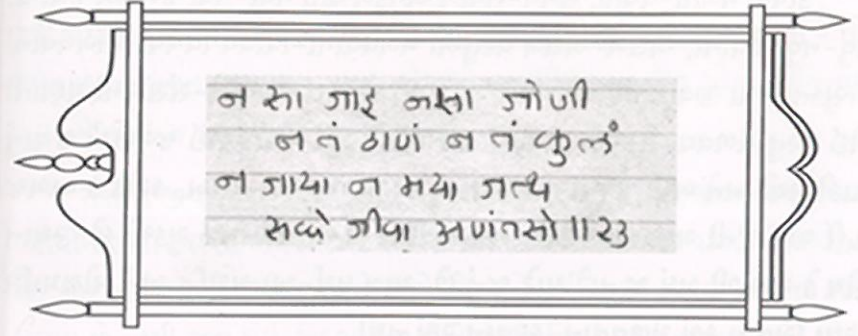 न सा जाइ न सा जोणी
न तं ठाणं न तं कुलं
न जाया न मया जत्थ
सव्वे जीवा अणंतसो॥२३